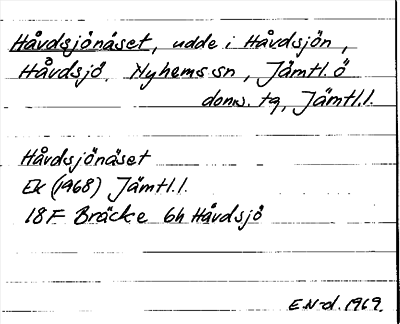 Håvdsjönäset, udde i Håvdsjön,
Håvdsjö, Nyhems sn, Jämtl. ö
doms. tg, Jämtl.l.
Håvdsjönäset
Ek (1968) Jämtl.l.
18F Bräcke 6h Håvdsjö
E.N-d. 1969.